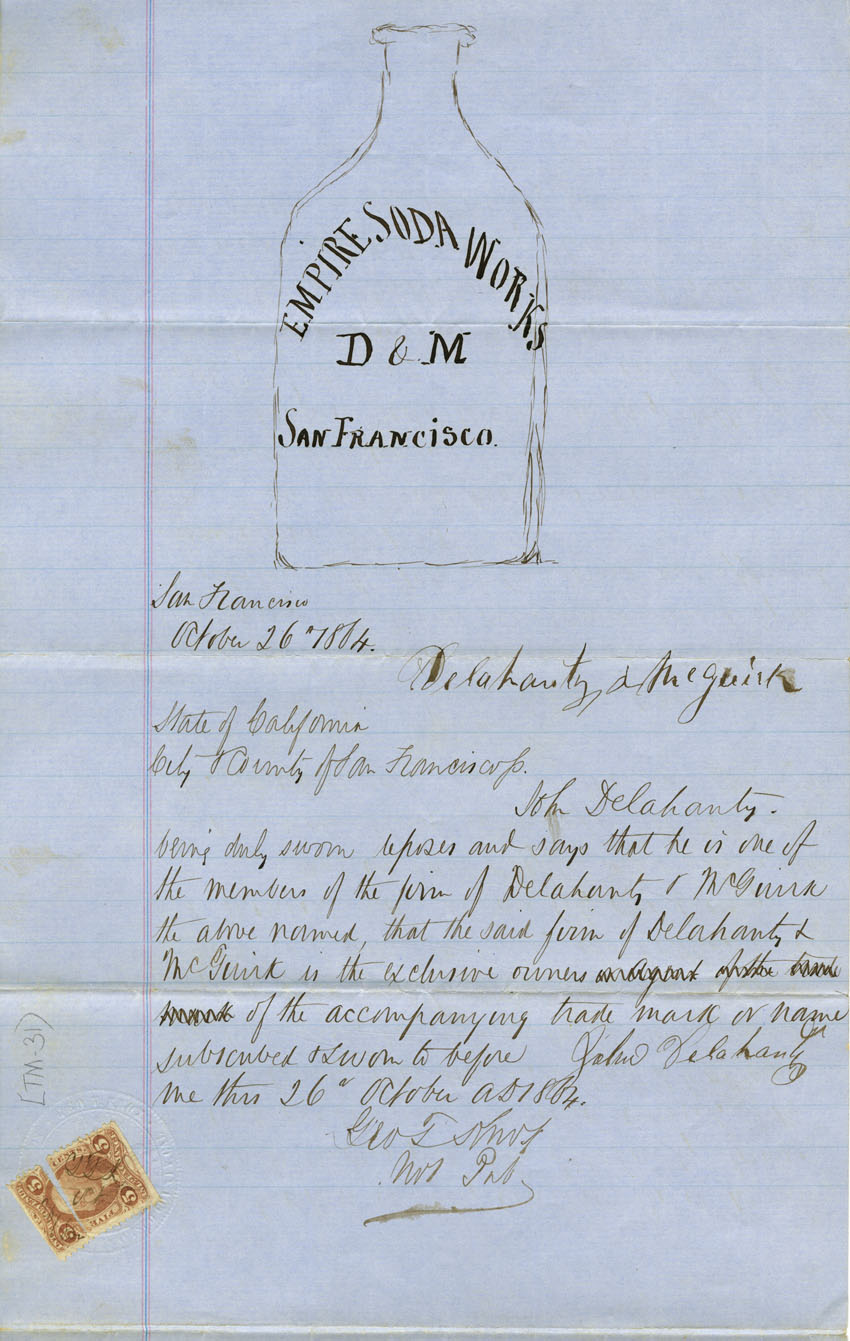 EMPIRE SODA WORKS
D & M
SAN FRANCISCO.
San Francisco
October 26" 1864.
Delahanty & McGuirk
State of California
City & County of San Francisco ss.
John Delahanty.
being duly sworn deposes and says that he is one of
the members of the firm of Delahanty & McGuirk
the above named, that the said firm of Delahanty &
McGuirk is the exclusive owners or agent of the trade
mark of the accompanying trade mark or name
subscribed & sworn to before John Delahanty
me this 26" October AD 1864.
Geo T Knox
Not Pub
[TM-31]
5
5
5